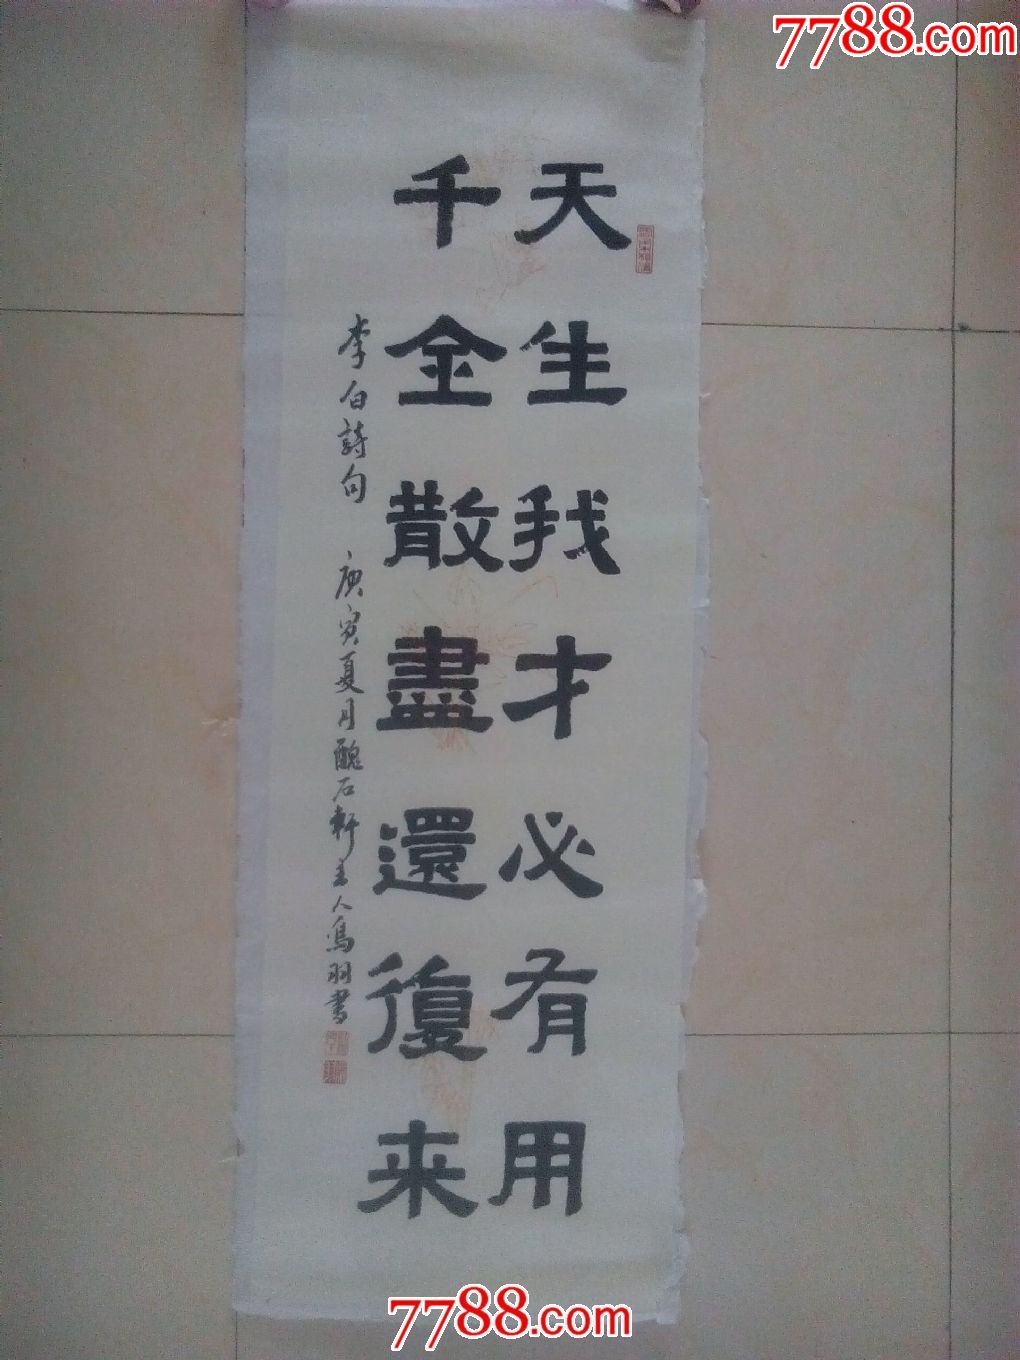 7788.com
天生我才必有用
千金散盡還復来
李白詩句 庚寅夏月醜石軒主人鳥羽書
7788.com